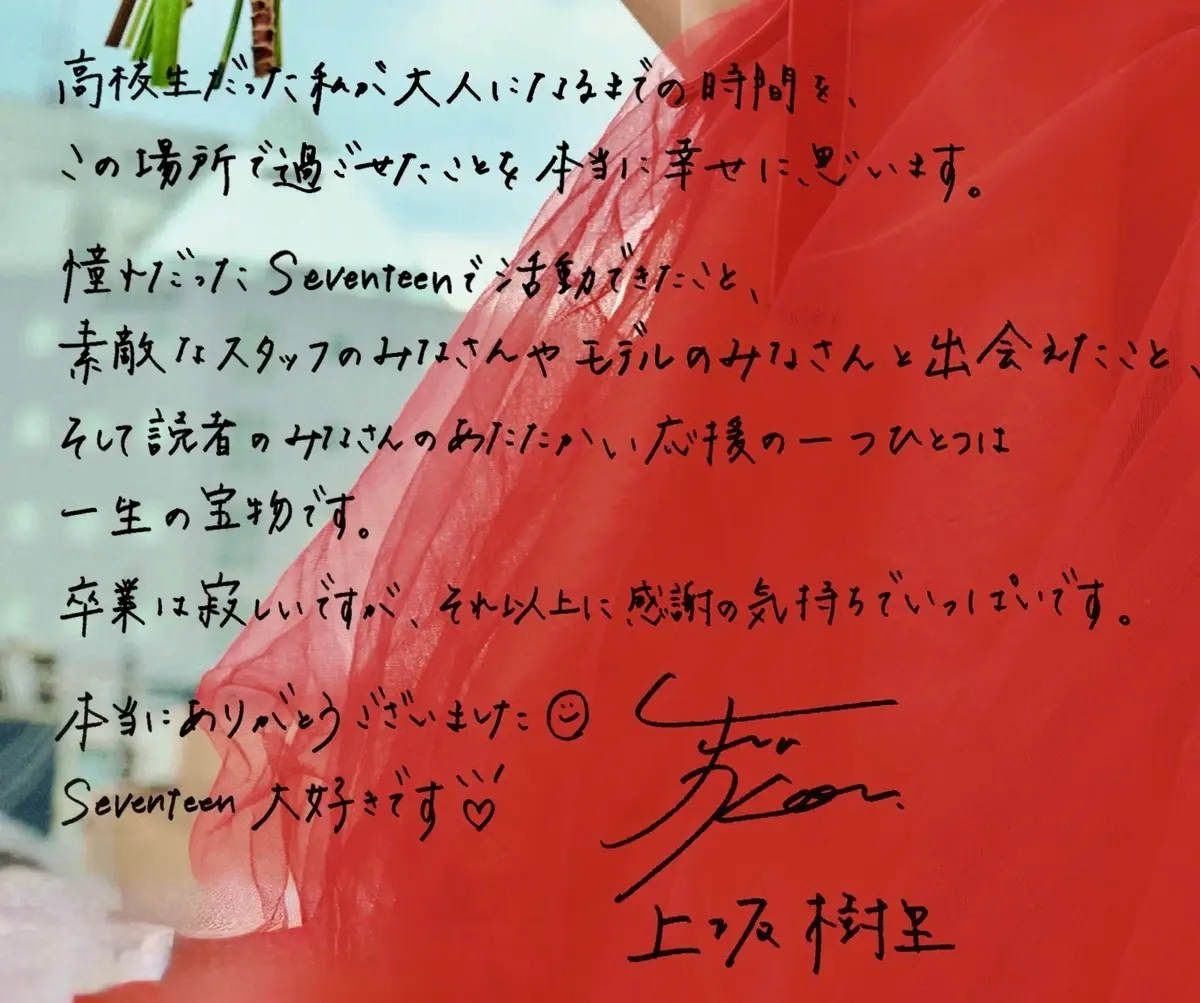 高校生だった私が大人になるまでの時間を、
この場所で過ごせたことを本当に幸せに思います。
憧れだったSeventeenで活動できたこと、
素敵なスタッフのみなさんやモデルのみなさんと出会えたこと、
そして読者のみなさんのあたたかい応援の一つひとつは
一生の宝物です。
卒業は寂しいですが、それ以上に感謝の気持ちでいっぱいです。
本当にありがとうございました☺
Seventeen 大好きです♡
上坂樹里